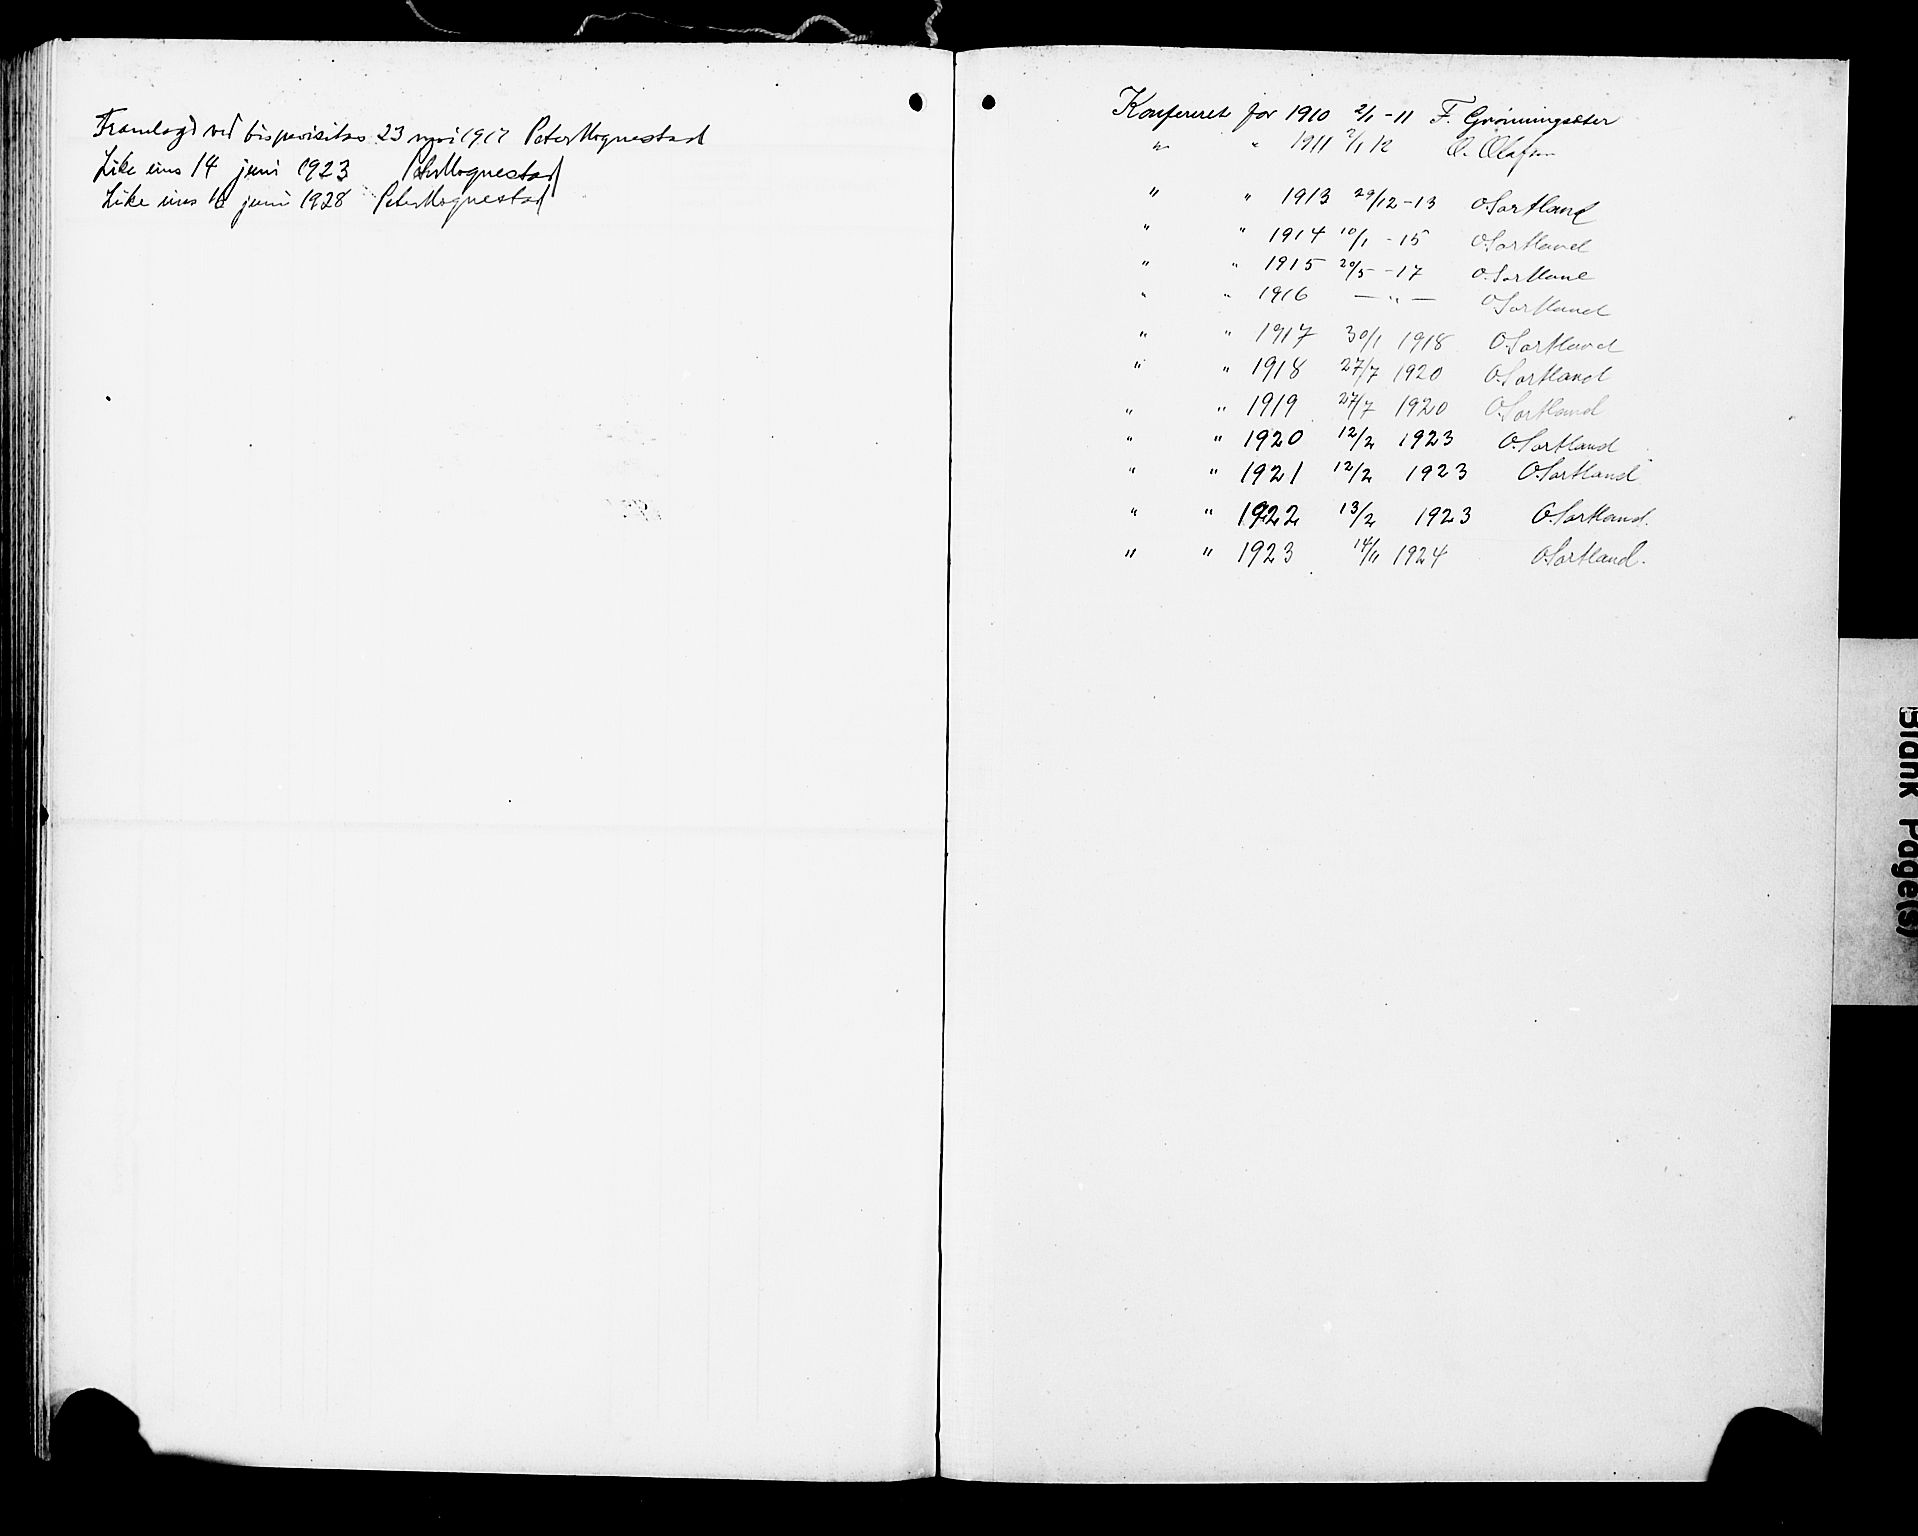 Framlagd ved bispevisitas 23 mai 1917 Peter Hognestad
Like eins 14 juni 1923 Peter Hognestad
Like eins juni 1928 Peter Hognestad
Konfereret for 1910 2/1 -11 F. Grønningsæter
" " 1911 2/1 12 O. Olafsen
" " 1913 29/12 -13 O. Sortland
" " 1914 10/1 -15 O. Sortland
" " 1915 20/5 -17 O. Sortland
" " 1916 — " — O. Sortland
" " 1917 30/1 1918 O. Sortland
" " 1918 27/7 1920 O. Sortland
" " 1919 27/7 1920 O. Sortland
" " 1920 12/2 1923 O. Sortland
" " 1921 12/2 1923 O. Sortland
" " 1922 13/2 1923 O. Sortland.
" " 1923 14/11 1924 O. Sortland.
Blank Page(s)